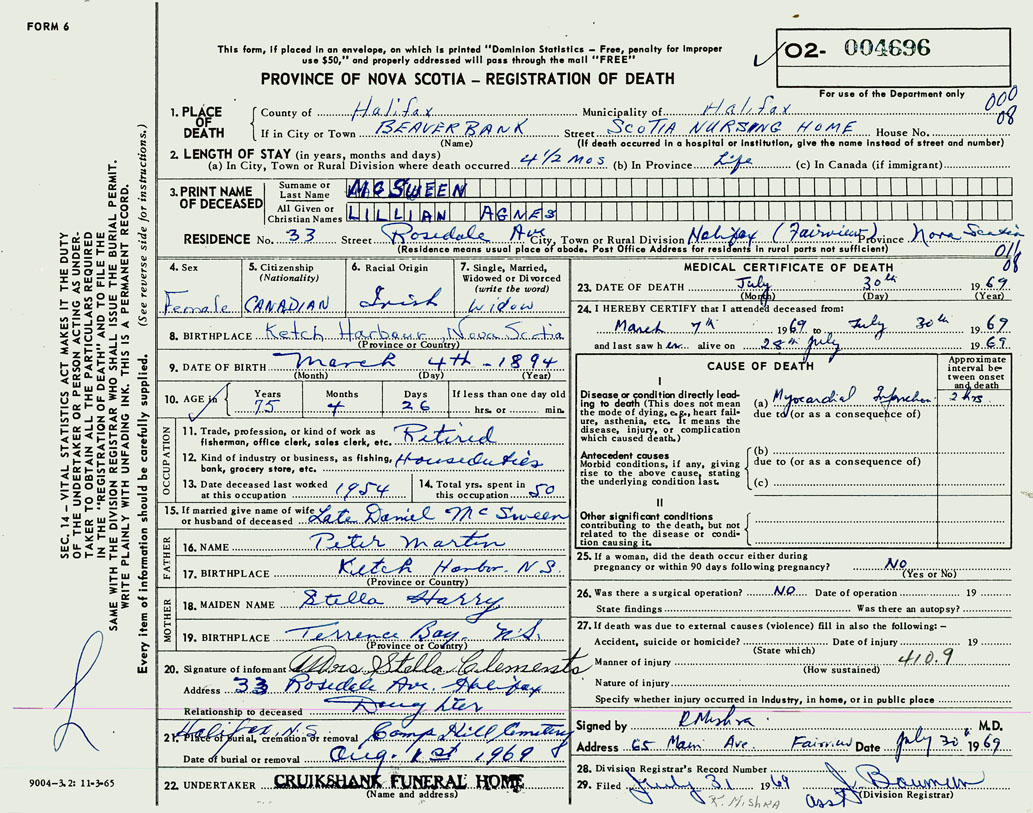 FORM 6
This form, if placed in an envelope, on which is printed "Dominion Statistics – Free, penalty for improper
use $50," and properly addressed will pass through the mail "FREE"
PROVINCE OF NOVA SCOTIA – REGISTRATION OF DEATH
O2- 004696
For use of the Department only
000
08
1. PLACE OF DEATH County of Halifax Municipality of Halifax
If in City or Town BEAVER BANK Street SCOTIA NURSING HOME House No.
(Name) (If death occurred in a hospital or institution, give the name instead of street and number)
2. LENGTH OF STAY (in years, months and days)
(a) In City, Town or Rural Division where death occurred 4 1/2 mos (b) In Province Life (c) In Canada (if immigrant)
3. PRINT NAME OF DECEASED Surname or Last Name MCSWEEN
All Given or Christian Names LILLIAN AGNES
RESIDENCE No. 33 Street Rosedale Ave City, Town or Rural Division Halifax (Fairview) Province Nova Scotia
(Residence means usual place of abode. Post Office Address for residents in rural parts not sufficient)
08
4. Sex Female
5. Citizenship (Nationality) CANADIAN
6. Racial Origin Irish
7. Single, Married, Widowed or Divorced (write the word) Widow
8. BIRTHPLACE Ketch Harbour Nova Scotia
(Province or Country)
9. DATE OF BIRTH March 4th - 1894
(Month) (Day) (Year)
10. AGE in Years 75 Months 4 Days 26 If less than one day old hrs. or min.
OCCUPATION
11. Trade, profession, or kind of work as fisherman, office clerk, sales clerk, etc. Retired
12. Kind of industry or business, as fishing, bank, grocery store, etc. Houseduties
13. Date deceased last worked at this occupation 1954
14. Total yrs. spent in this occupation 50
15. If married give name of wife or husband of deceased Late Daniel McSween
FATHER
16. NAME Peter Martin
17. BIRTHPLACE Ketch Harbor. N.S.
(Province or Country)
MOTHER
18. MAIDEN NAME Stella Harry
19. BIRTHPLACE Terrence Bay. N.S.
(Province or Country)
20. Signature of informant Mrs Stella Clements
Address 33 Rosedale Ave. Halifax
Relationship to deceased Daughter
21. Place of burial, cremation or removal Halifax N.S. Camp Hill Cemetery
Date of burial or removal Aug. 1st 1969
22. UNDERTAKER CRUIKSHANK FUNERAL HOME
(Name and address)
MEDICAL CERTIFICATE OF DEATH
23. DATE OF DEATH July 30th 1969
(Month) (Day) (Year)
24. I HEREBY CERTIFY that I attended deceased from:
March 7th 1969 to July 30th 1969
and last saw her alive on 28th July 1969
CAUSE OF DEATH
Approximate interval between onset and death
I
Disease or condition directly leading to death (This does not mean the mode of dying, e.g., heart failure, asthenia, etc. It means the disease, injury, or complication which caused death.)
(a) Myocardial Infarction 2 hrs
due to (or as a consequence of)
Antecedent causes
Morbid conditions, if any, giving rise to the above cause, stating the underlying condition last.
(b)
due to (or as a consequence of)
(c)
II
Other significant conditions
contributing to the death, but not related to the disease or condition causing it.
25. If a woman, did the death occur either during pregnancy or within 90 days following pregnancy? NO
(Yes or No)
26. Was there a surgical operation? NO Date of operation 19
State findings Was there an autopsy?
27. If death was due to external causes (violence) fill in also the following: –
Accident, suicide or homicide? Date of injury 19
(State which)
Manner of injury 410.9
(How sustained)
Nature of injury
Specify whether injury occurred in Industry, in home, or in public place
Signed by R Mishra M.D.
Address 65 Main Ave Fairview Date July 30th 1969
28. Division Registrar's Record Number
29. Filed July 31 1969 J. Bowmen
(Division Registrar)
K. MISHRA asst
SEC. 14 – VITAL STATISTICS ACT MAKES IT THE DUTY
OF THE UNDERTAKER OR PERSON ACTING AS UNDER-
TAKER TO OBTAIN ALL THE PARTICULARS REQUIRED
IN THE "REGISTRATION OF DEATH" AND TO FILE THE
SAME WITH THE DIVISION REGISTRAR WHO SHALL ISSUE THE BURIAL PERMIT.
WRITE PLAINLY WITH UNFADING INK. THIS IS A PERMANENT RECORD.
Every item of information should be carefully supplied. (See reverse side for instructions.)
9004-3.2: 11-3-65